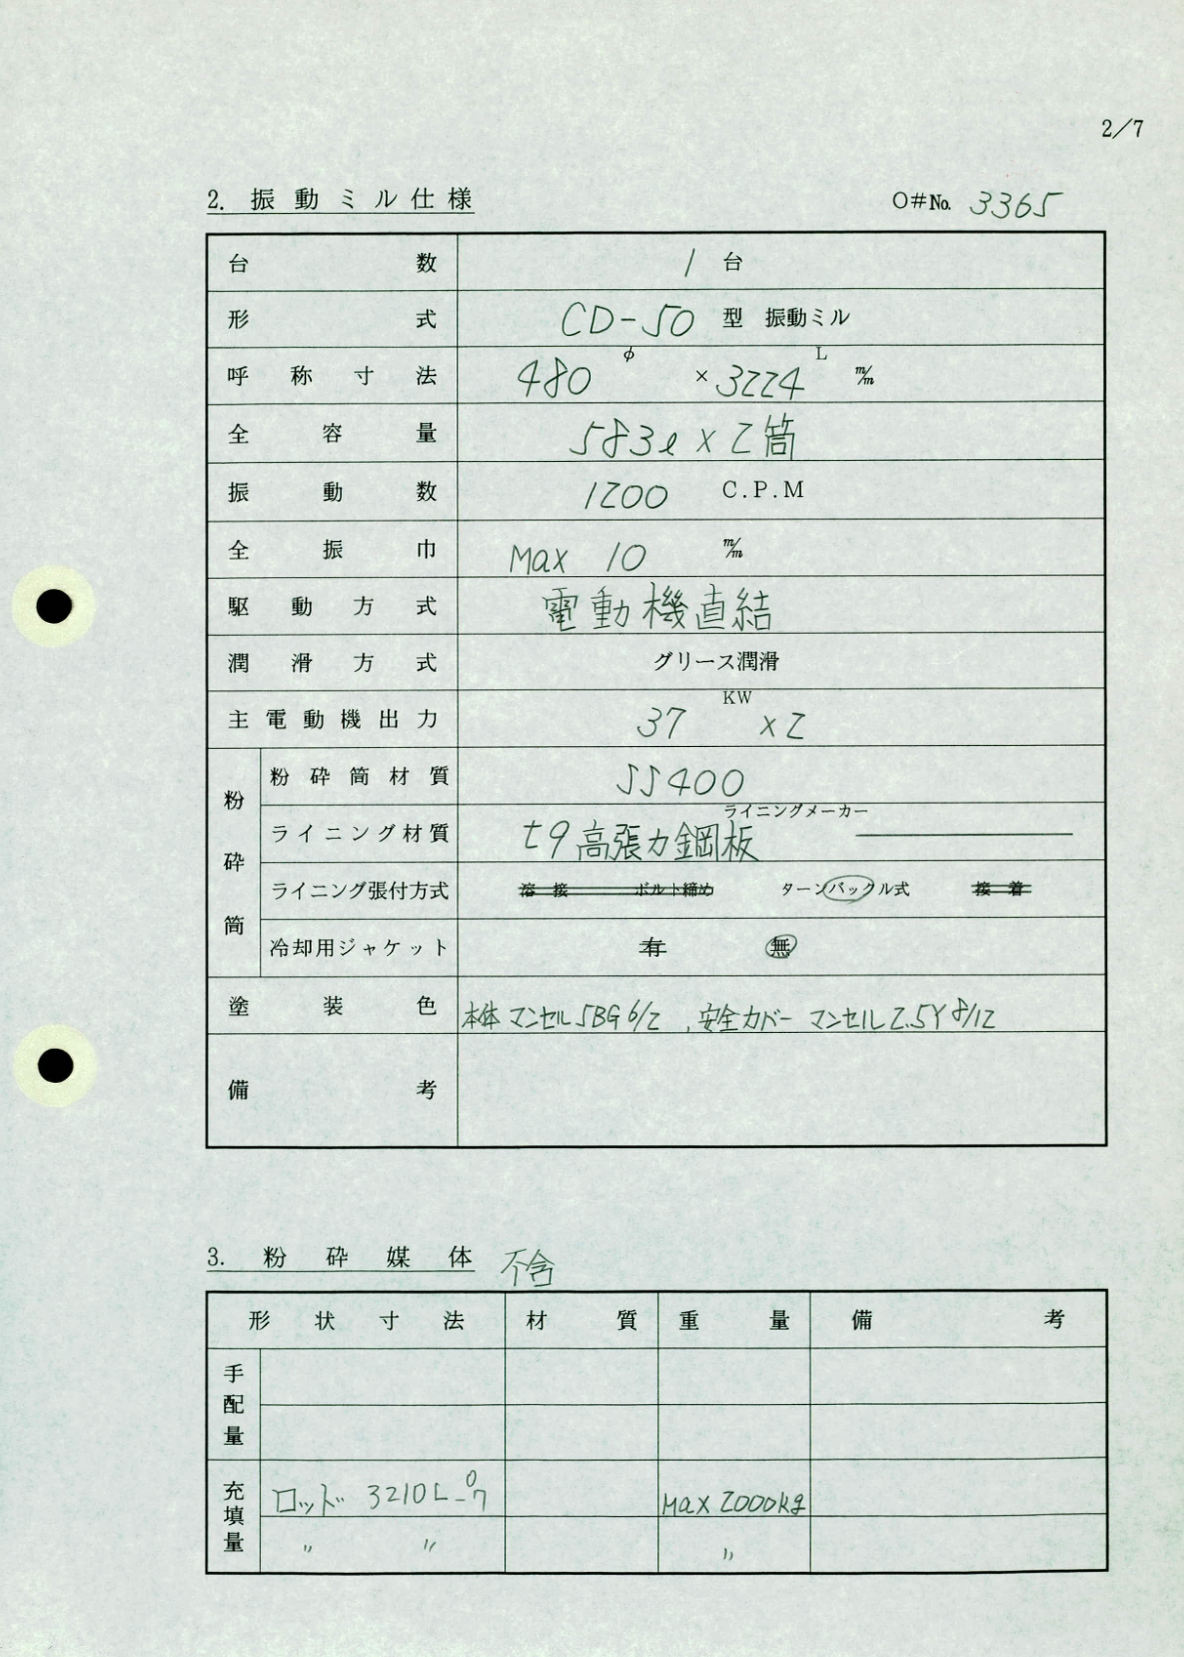 2/7
2. 振動ミル仕様 O#No. 3365
台数 1 台
形式 CD-50 型 振動ミル
呼称寸法 480 φ × 3224 L m/m
全容量 583ℓ × 2筒
振動数 1200 C.P.M
全振巾 Max 10 m/m
駆動方式 電動機直結
潤滑方式 グリース潤滑
主電動機出力 37 KW × 2
粉砕筒
粉砕筒材質 SS400
ライニング材質 t9高張力鋼板 ライニングメーカー
ライニング張付方式 溶接 ボルト締め ターンバックル式 接着
冷却用ジャケット 有 無
塗装色 本体 マンセル5BG 6/2 , 安全カバー マンセル2.5Y 8/12
備考
3. 粉砕媒体 不含
形状寸法 材質 重量 備考
手配量
充填量 ロッド 3210L -0/7 Max 2000kg
〃 〃 〃